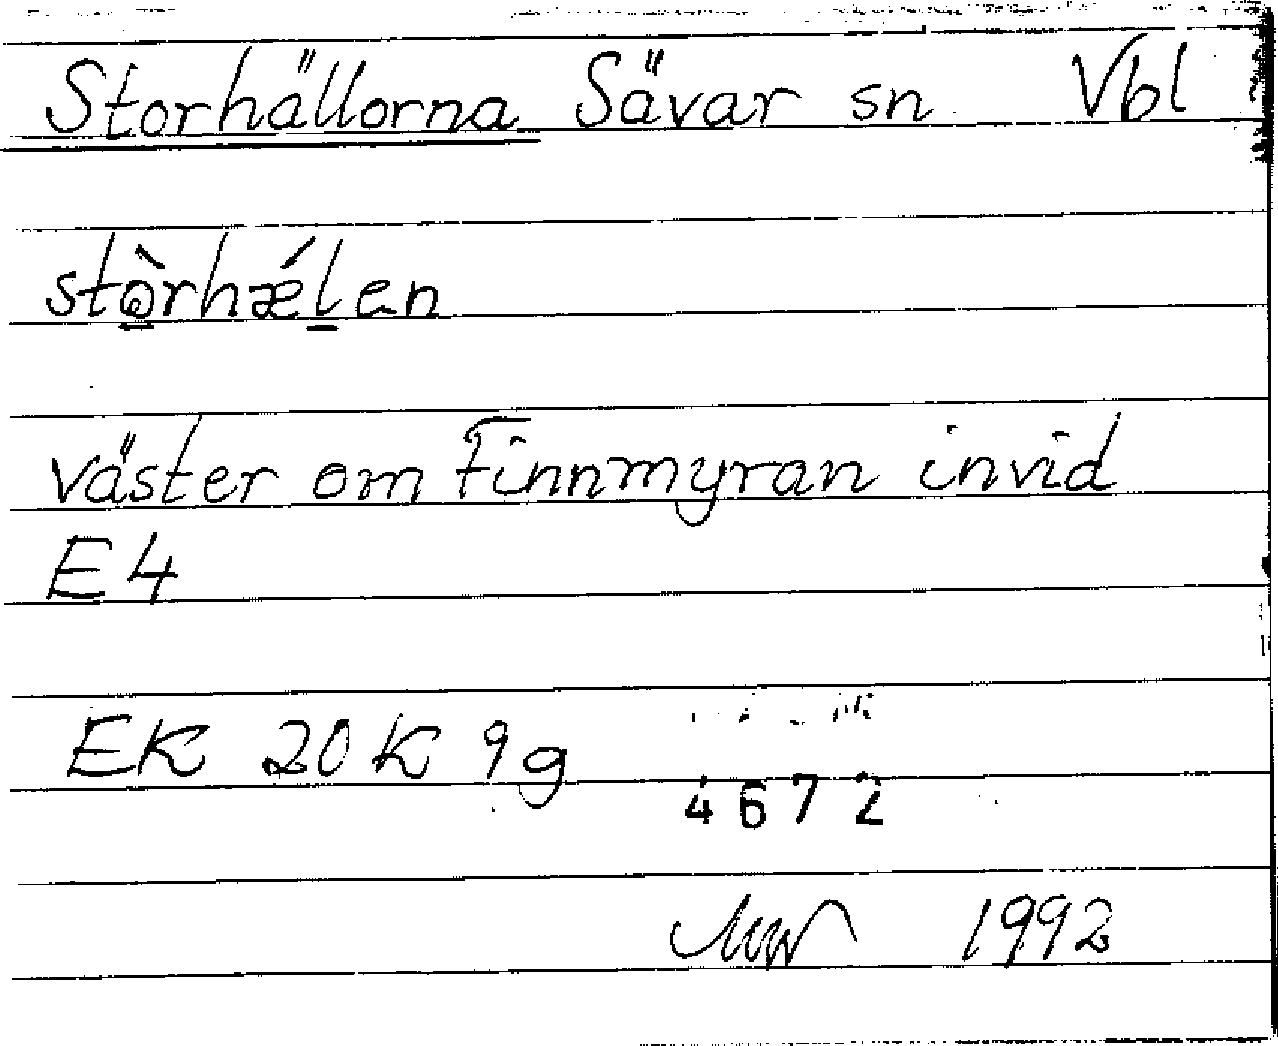 Storhällorna Sävar sn Vbl
stò̱rhǽḻen
väster om Finnmyran invid
E4
EK 20K 9g
4672
1992